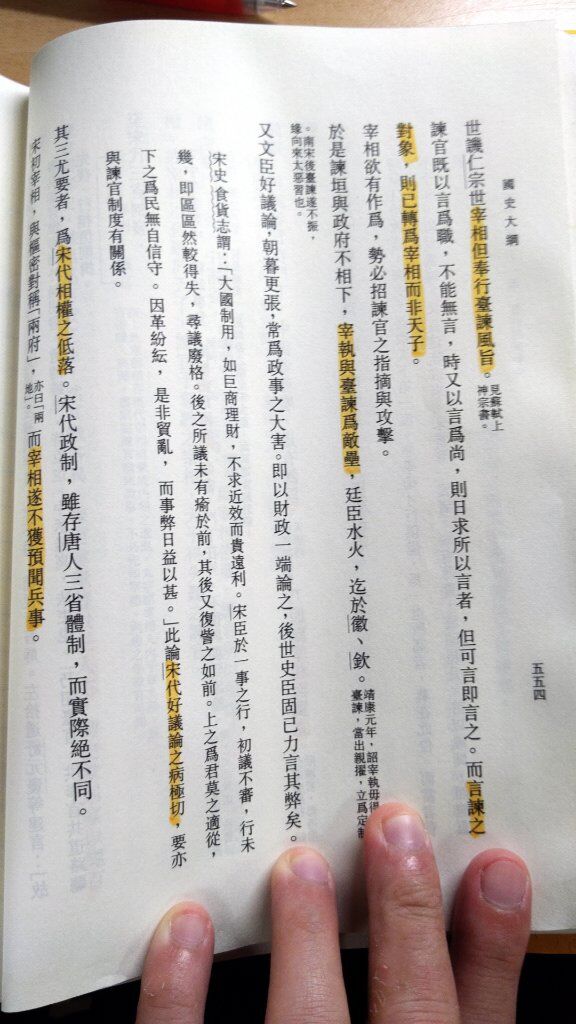 國史大綱
五五四
世譏仁宗世宰相但奉行臺諫風旨。見蘇軾上神宗書。
諫官既以言爲職，不能無言，時又以言爲尚，則日求所以言者，但可言即言之。而言諫之
對象，則已轉爲宰相而非天子。
宰相欲有作爲，勢必招諫官之指摘與攻擊。
於是諫垣與政府不相下，宰執與臺諫爲敵壘，廷臣水火，迄於徽、欽。靖康元年，詔宰執毋得臺諫，當出親擢，立爲定制
。南宋後臺諫遂不振，緣向來太惡習也。
又文臣好議論，朝暮更張，常爲政事之大害。即以財政一端論之，後世史臣固已力言其弊矣。
宋史食貨志謂：「大國制用，如巨商理財，不求近效而貴遠利。宋臣於一事之行，初議不審，行未
幾，即區區然較得失，尋議廢格。後之所議未有瘉於前，其後又復訾之如前。上之爲君莫之適從，
下之爲民無自信守。因革紛紜，是非貿亂，而事弊日益以甚。」此論宋代好議論之病極切，要亦
與諫官制度有關係。
其三尤要者，爲宋代相權之低落。宋代政制，雖存唐人三省體制，而實際絕不同。
宋初宰相，與樞密對稱「兩府」，亦曰「兩地」。而宰相遂不獲預聞兵事。